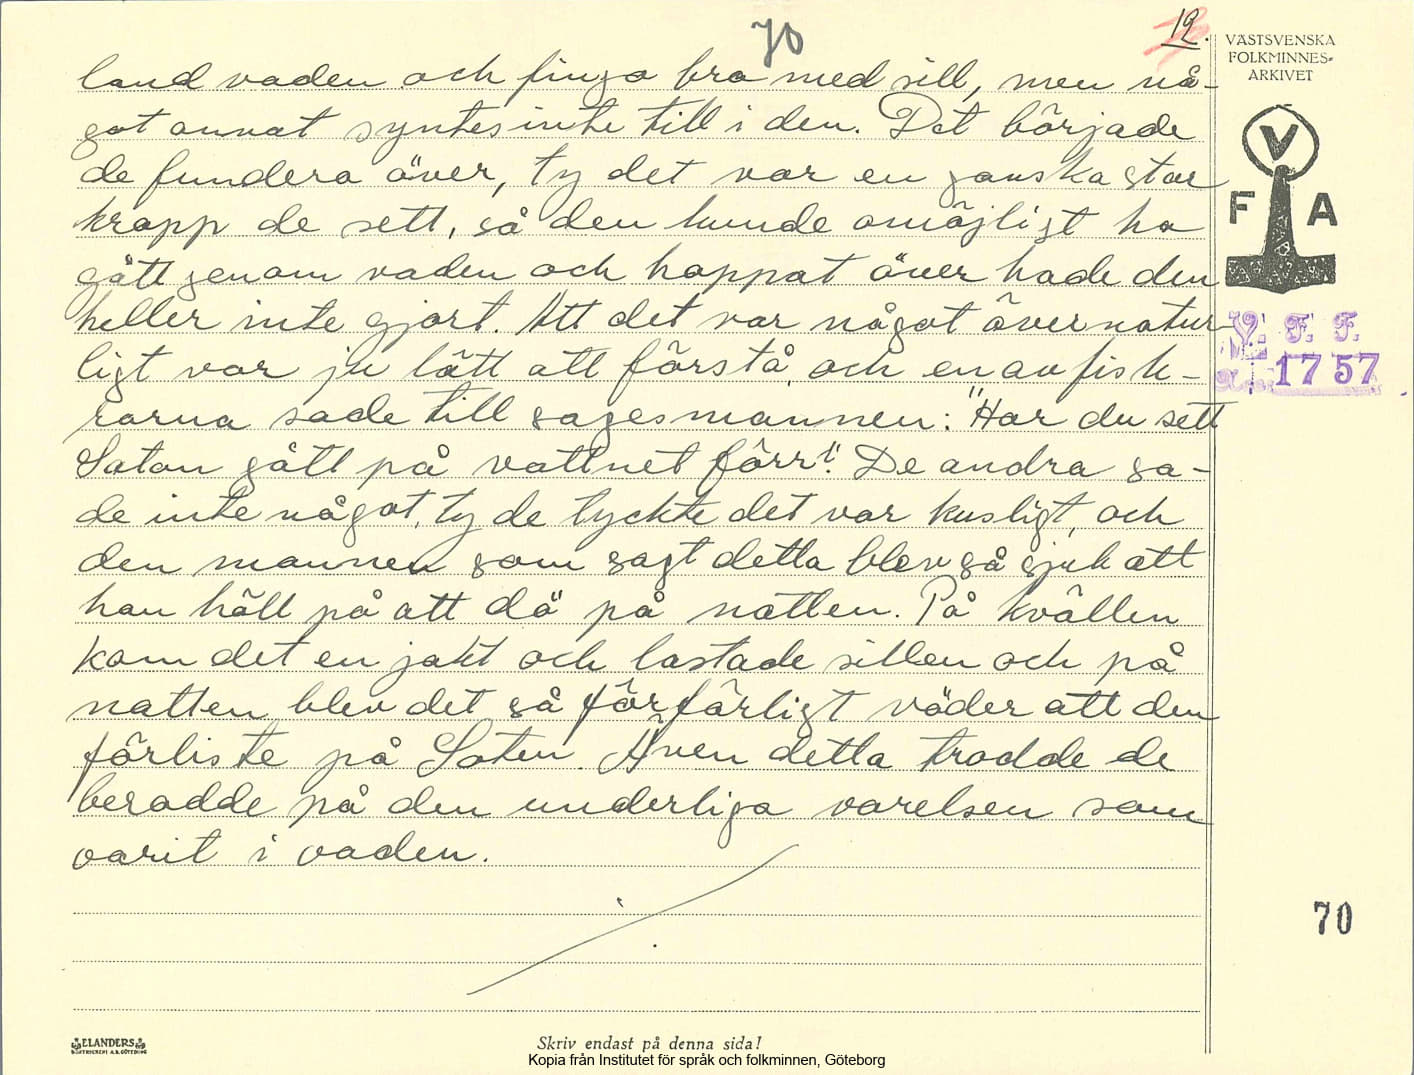 70
12.
VÄSTSVENSKA
FOLKMINNES-
ARKIVET
V
F A
V. F. F.
1757
land vaden och fingo bra med sill, men nå-
got annat syntes inte till i den. Det började
de fundera över, ty det var en ganska stor
kropp de sett, så den kunde omöjligt ha
gått genom vaden och hoppat över hade den
heller inte gjort. Att det var något övernatur-
ligt var ju lätt att förstå, och en av fisk-
rarna sade till sagesmannen: "Har du sett
Satan gått på vattnet förr". De andra sa-
de inte något, ty de tyckte det var kusligt, och
den mannen som sagt detta blev så sjuk att
han höll på att dö på natten. På kvällen
kom det en jakt och lastade sillen och på
natten blev det så förfärligt väder att den
förliste på Soten. Även detta trodde de
berodde på den underliga varelsen som
varit i vaden.
70
ELANDERS
BOKTRYCKERI A.B. GÖTEBORG
Skriv endast på denna sida!
Kopia från Institutet för språk och folkminnen, Göteborg